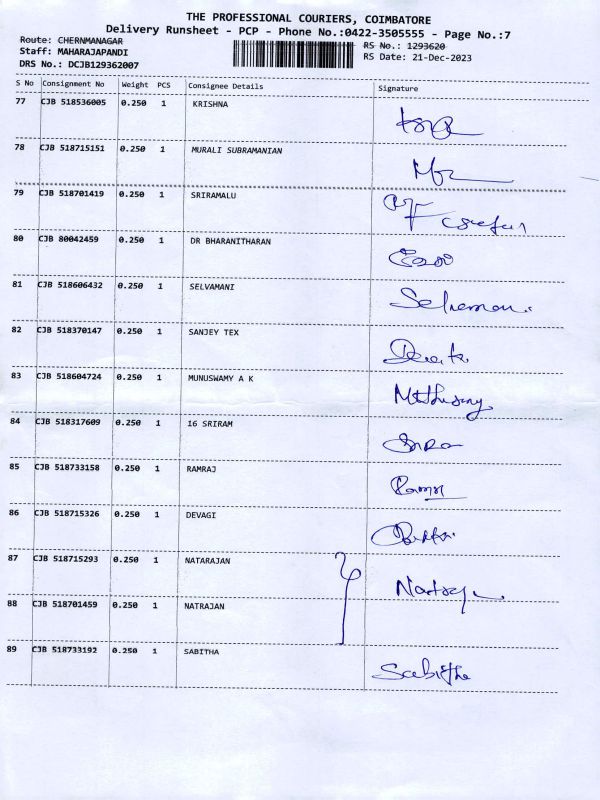 THE PROFESSIONAL COURIERS, COIMBATORE
Delivery Runsheet - PCP - Phone No.:0422-3505555 - Page No.:7
Route: CHERNMANAGAR RS No.: 1293620
Staff: MAHARAJAPANDI RS Date: 21-Dec-2023
DRS No.: DCJB129362007
S No Consignment No Weight PCS Consignee Details Signature
77 CJB 518536005 0.250 1 KRISHNA
78 CJB 518715151 0.250 1 MURALI SUBRAMANIAN
79 CJB 518701419 0.250 1 SRIRAMALU
80 CJB 80042459 0.250 1 DR BHARANITHARAN
81 CJB 518606432 0.250 1 SELVAMANI
82 CJB 518370147 0.250 1 SANJEY TEX
83 CJB 518604724 0.250 1 MUNUSWAMY A K
84 CJB 518317609 0.250 1 16 SRIRAM
85 CJB 518733158 0.250 1 RAMRAJ
86 CJB 518715326 0.250 1 DEVAGI
87 CJB 518715293 0.250 1 NATARAJAN
88 CJB 518701459 0.250 1 NATRAJAN
89 CJB 518733192 0.250 1 SABITHA Sabitha